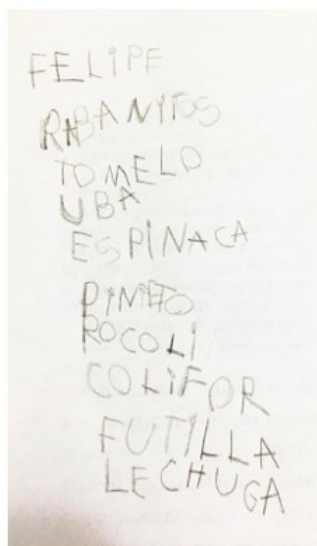 FELIPE
RABANITOS
TOMELO
UBA
ESPINACA
PIMETO
ROCOLI
COLIFOR
FUTILLA
LECHUGA